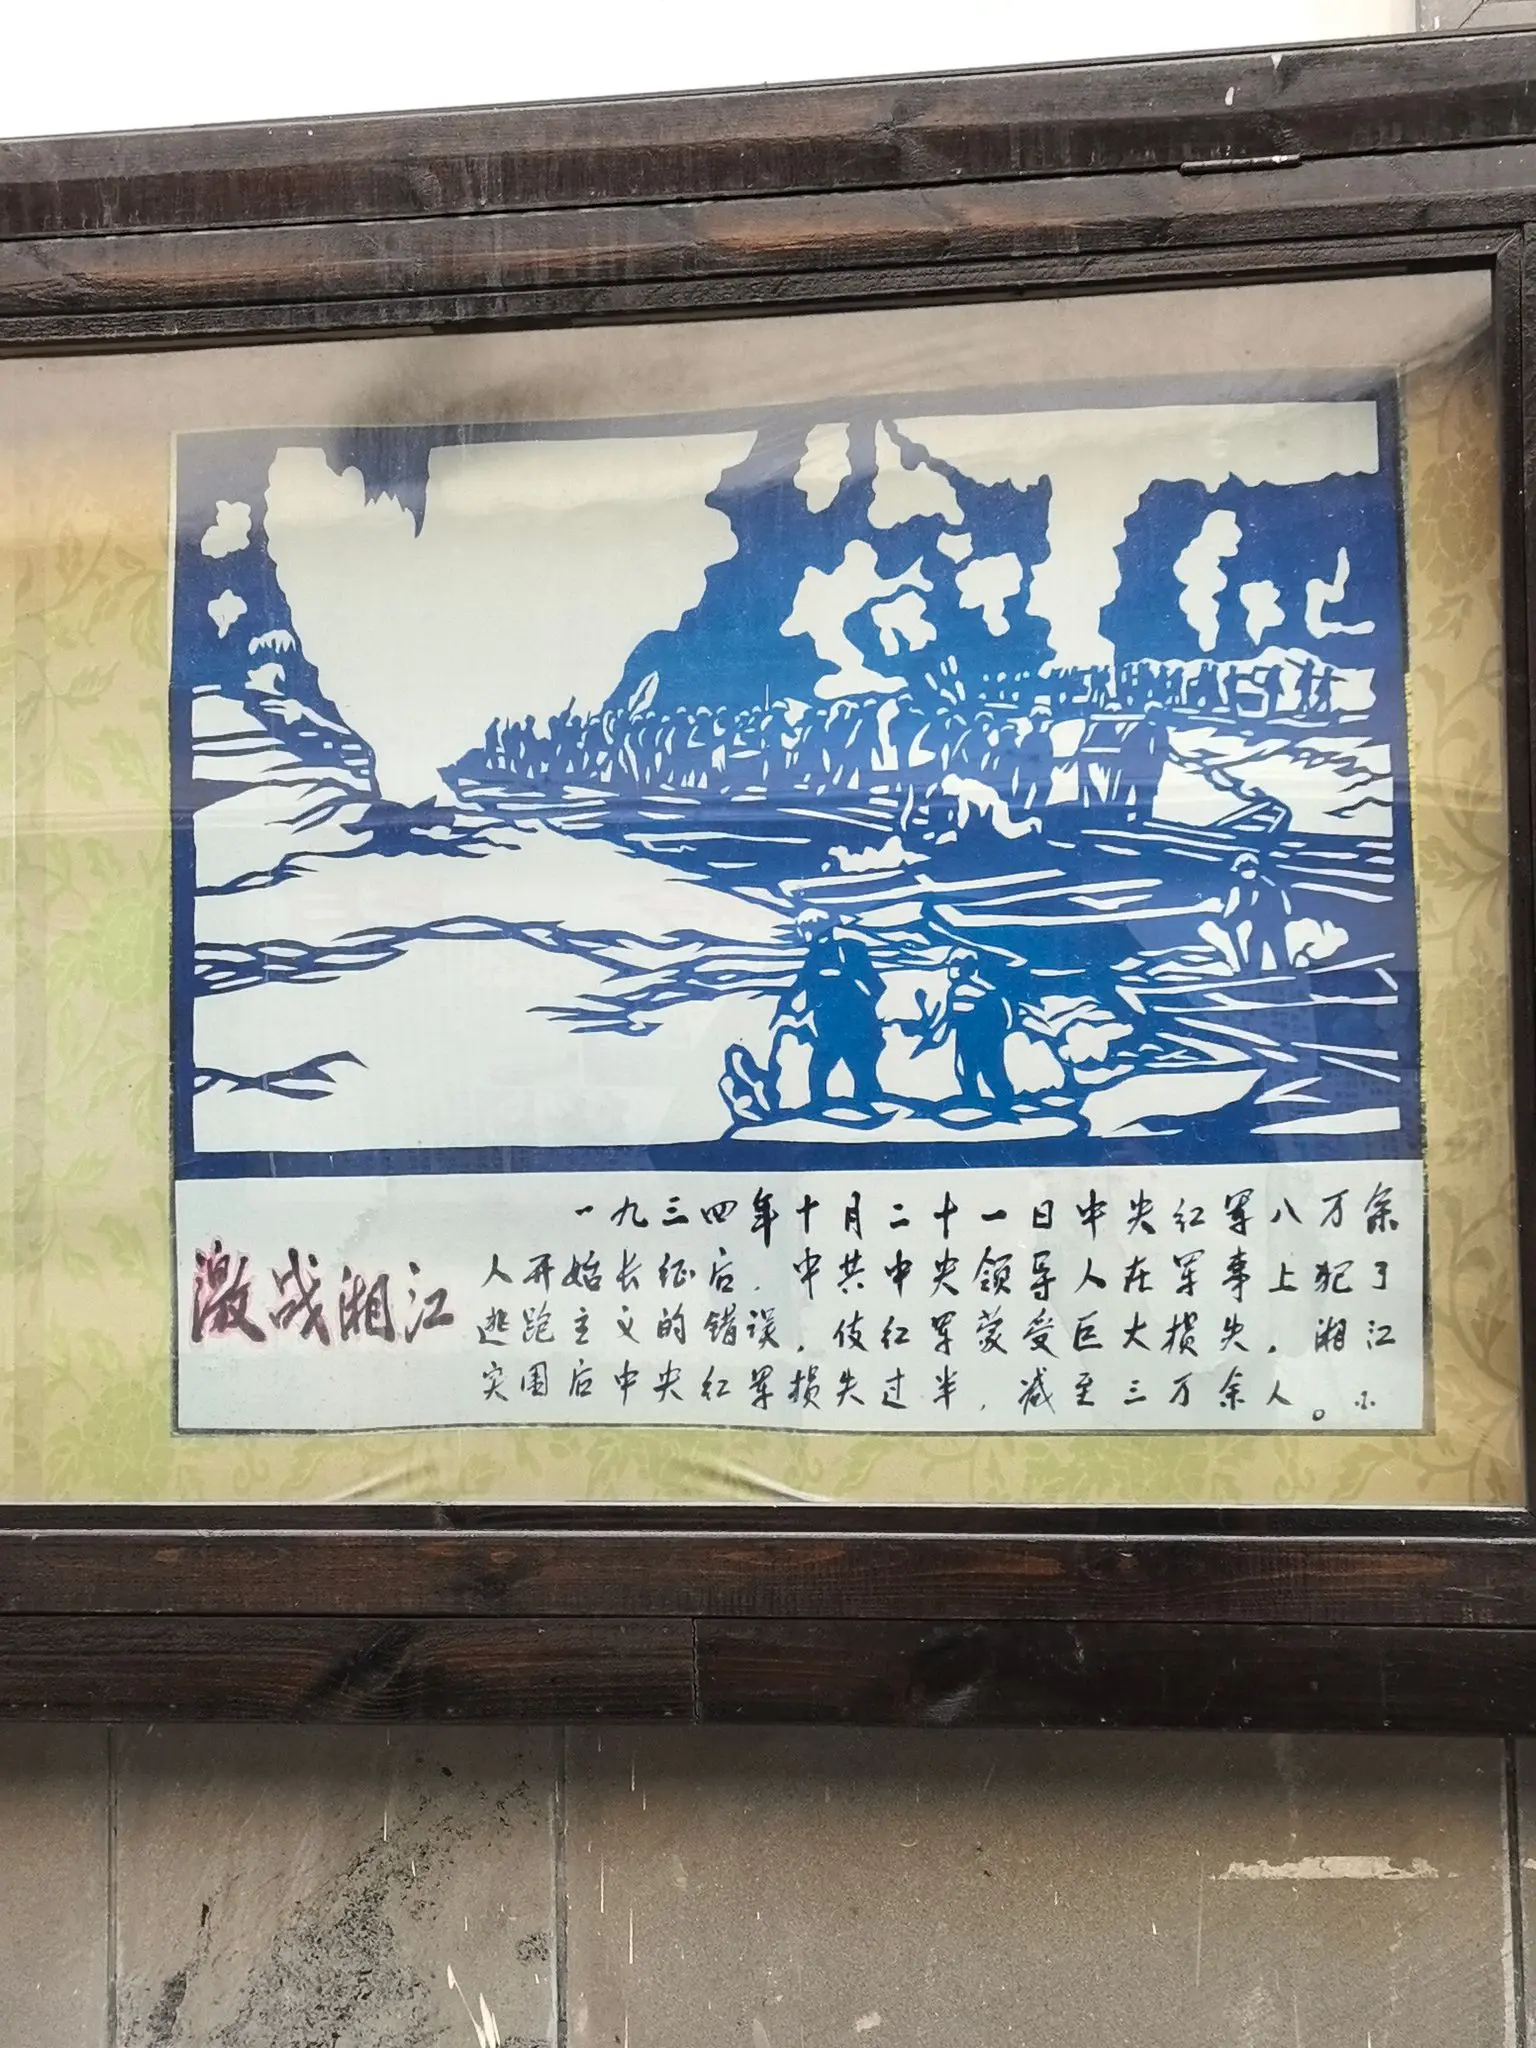 激战湘江
一九三四年十月二十一日中央红军八万余
人开始长征后，中共中央领导人在军事上犯了
逃跑主义的错误，使红军蒙受巨大损失，湘江
突围后中央红军损失过半，减至三万余人。